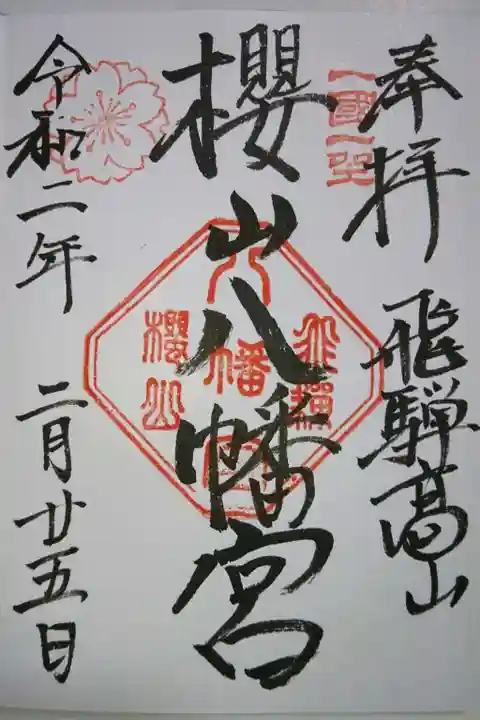 奉拝 飛騨高山
一國一社
櫻山八幡宮
八幡宮
飛騨
櫻山
令和二年 二月廿五日